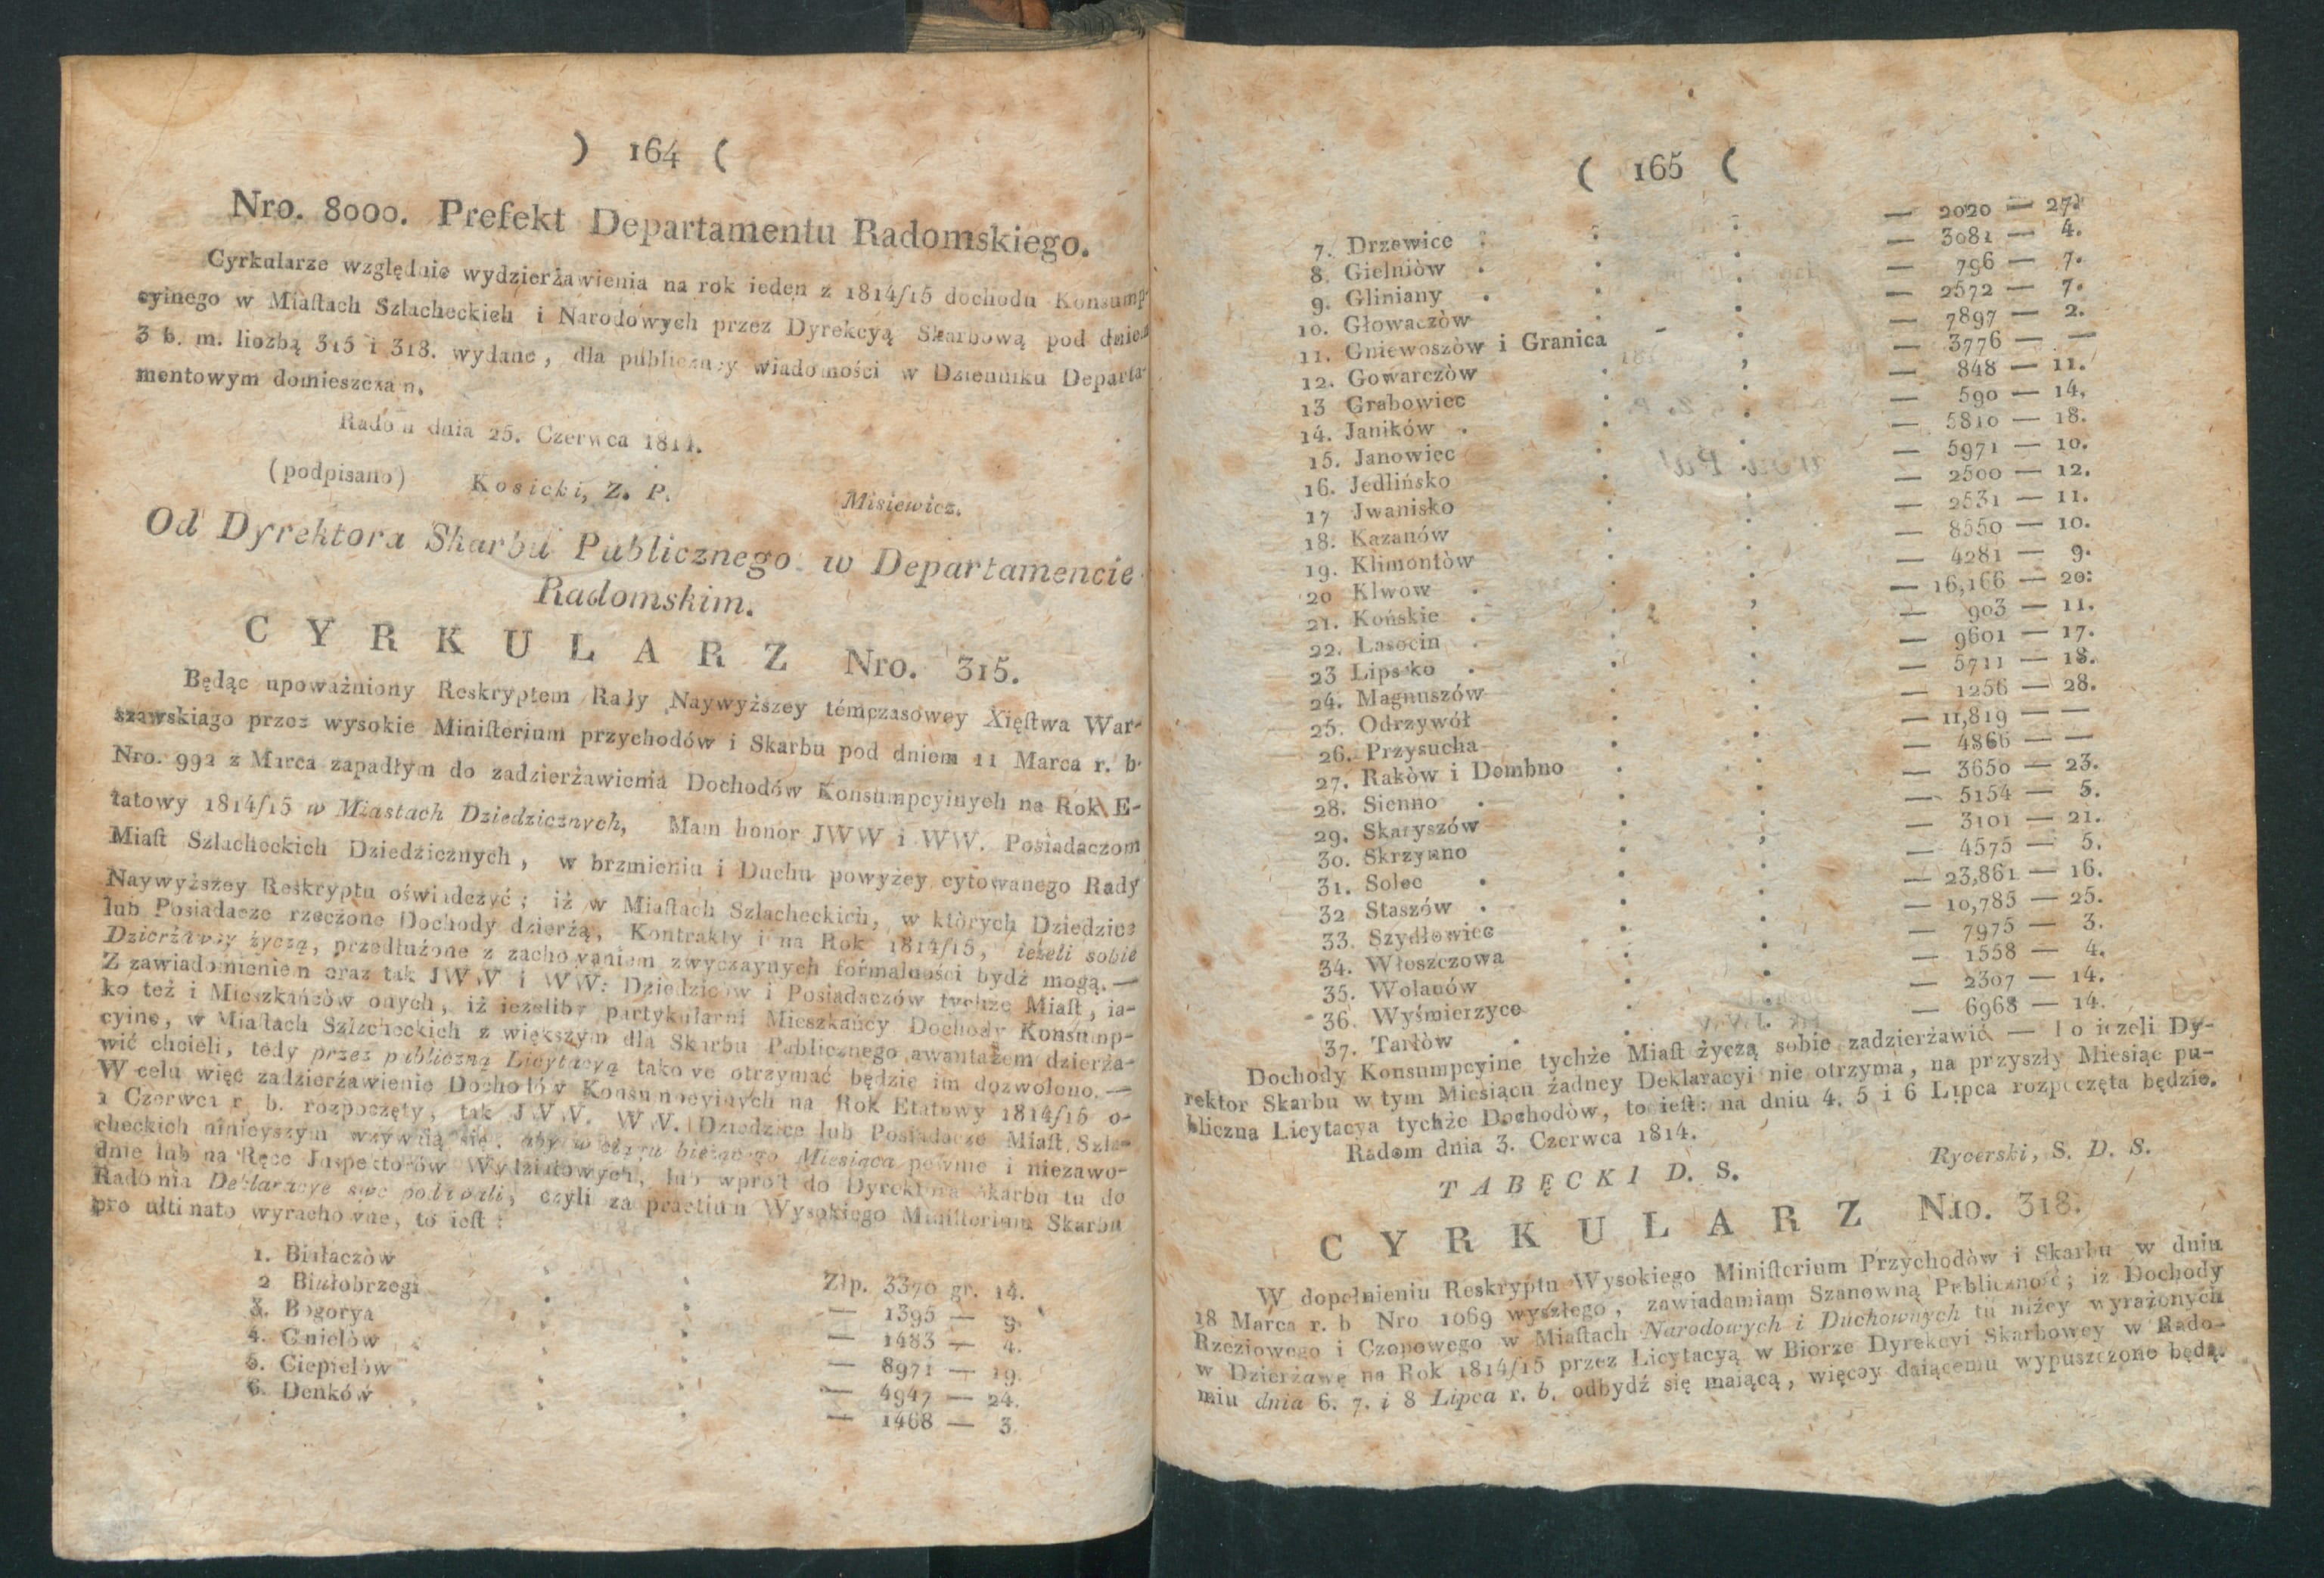 ) 164 (
Nro. 8000. Prefekt Departamentu Radomskiego.
Cyrkularze względnie wydzierżawienia na rok ieden z 1814/15 dochodu Konsump-
cyinego w Miaſtach Szlacheckich i Narodowych przez Dyrekcyą Skarbową pod dniem
3 b. m. liczbą 315 i 318. wydane, dla publiczney wiadomości w Dzienniku Departa-
mentowym domieszczam.
Radom dnia 25. Czerwca 1814.
(podpisano) Kosicki, Z. P. Misiewicz.
Od Dyrektora Skarbu Publicznego w Departamencie
Radomskim.
CYRKULARZ Nro. 315.
Będąc upoważniony Reskryptem Rady Naywyższey témczasowey Xięſtwa War-
szawskiago przez wysokie Miniſterium przychodów i Skarbu pod dniem 11 Marca r. b.
Nro. 992 z Marca zapadłym do zadzierżawienia Dochodów Konsumpcyinych na Rok E-
tatowy 1814/15 w Miastach Dziedzicznych, Mam honor JWW i WW. Posiadaczom
Miaſt Szlacheckich Dziedzicznych, w brzmieniu i Duchu powyżey cytowanego Rady
Naywyższey Reskryptu oświadczyć; iż w Miaſtach Szlacheckich, w których Dziedzice
lub Posiadacze rzeczone Dochody dzierżą, Kontrakty i na Rok 1814/15, ieżeli sobie
Dzierżawy życzą, przedłużone z zachowaniem zwyczaynych formalności bydź mogą. —
Z zawiadomieniem oraz tak JWW i WW: Dziedziców i Posiadaczów tychże Miaſt, ia-
ko też i Mieszkańców onych, iż ieżeliby partykularni Mieszkańcy Dochody Konsump-
cyine, w Miaſtach Szlacheckich z większym dla Skarbu Publicznego awantażem dzierża-
wić chcieli, tedy przez publiczną Licytacyą takowe otrzymać będzie im dozwolono. —
W celu więc zadzierżawienie Dochodów Konsumpcyinych na Rok Etatowy 1814/15 o-
1 Czerwca r. b. rozpoczęty, tak JWW. WW. Dziedzice lub Posiadacze Miaſt Szla-
checkich ninieyszym wzywaią się, aby w ciągu bieżącego Miesiąca pewnie i niezawo-
dnie lub na Ręce Inspektorów Wydziałowych, lub wproſt do Dyrektora Skarbu tu do
Radomia Deklaracye swe podawali, czyli za praetium Wysokiego Miniſterium Skarbu
pro ultimato wyrachowne, to ieſt:
1. Białaczòw Złp. 3370 gr. 14.
2 Białobrzegi — 1395 — 9.
3. Bogorya — 1483 — 4.
4. Cmielòw — 8971 — 19.
5. Ciepielòw — 4947 — 24.
6. Denków — 1468 — 3
( 165 (
7. Drzewice — 2020 — 27.
8. Gielniòw — 3081 — 4.
9. Gliniany — 796 — 7.
10. Głowaczòw — 2572 — 7.
11. Gniewoszòw i Granica — 7897 — 2.
12. Gowarczòw — 3776 — —
13 Grabowiec — 848 — 11.
14. Janików — 590 — 14.
15. Janowiec — 5810 — 18.
16. Jedlińsko — 5971 — 10.
17 Jwanisko — 2500 — 12.
18. Kazanów — 2531 — 11.
19. Klimontòw — 8550 — 10.
20 Klwow — 4281 — 9.
21. Końskie — 16,166 — 20:
22. Łasocin — 903 — 11.
23 Lipsko — 9601 — 17.
24. Magnuszów — 5711 — 18.
25. Odrzywół — 1256 — 28.
26. Przysucha — 11,819 — —
27. Raków i Dembno — 4866 — —
28. Sienno — 3650 — 23.
29. Skaryszów — 5154 — 5.
30. Skrzynno — 3101 — 21.
31. Solec — 4575 — 5.
32 Staszów — 23,861 — 16.
33. Szydłowiec — 10,785 — 25.
34. Włoszczowa — 7975 — 3.
35. Wolanów — 1558 — 4.
36. Wyśmierzyce — 2307 — 14.
37. Tarłòw — 6968 — 14.
Dochody Konsumpcyine tychże Miaſt życzą sobie zadzierżawić — To ieżeli Dy-
rektor Skarbu w tym Miesiącu żadney Deklaracyi nie otrzyma, na przyszły Miesiąc pu-
bliczna Licytacya tychże Dochodòw, to ieſt: na dniu 4. 5 i 6 Lipca rozpoczęta będzie.
Radom dnia 3. Czerwca 1814.
TABĘCKI D. S. Rycerski, S. D. S.
CYRKULARZ Nro. 318.
W dopełnieniu Reskryptu Wysokiego Miniſterium Przychodòw i Skarbu w dniu
18 Marca r. b Nro 1069 wyszłego, zawiadamiam Szanowną Publiczność; iż Dochody
Rzeziowego i Czopowego w Miaſtach Narodowych i Duchownych tu niżey wyrażonych
w Dzierżawę na Rok 1814/15 przez Licytacyą w Biorze Dyrekcyi Skarbowey w Rado-
miu dnia 6. 7. i 8 Lipca r. b. odbydź się maiącą, więcey daiącemu wypuszczone będą.